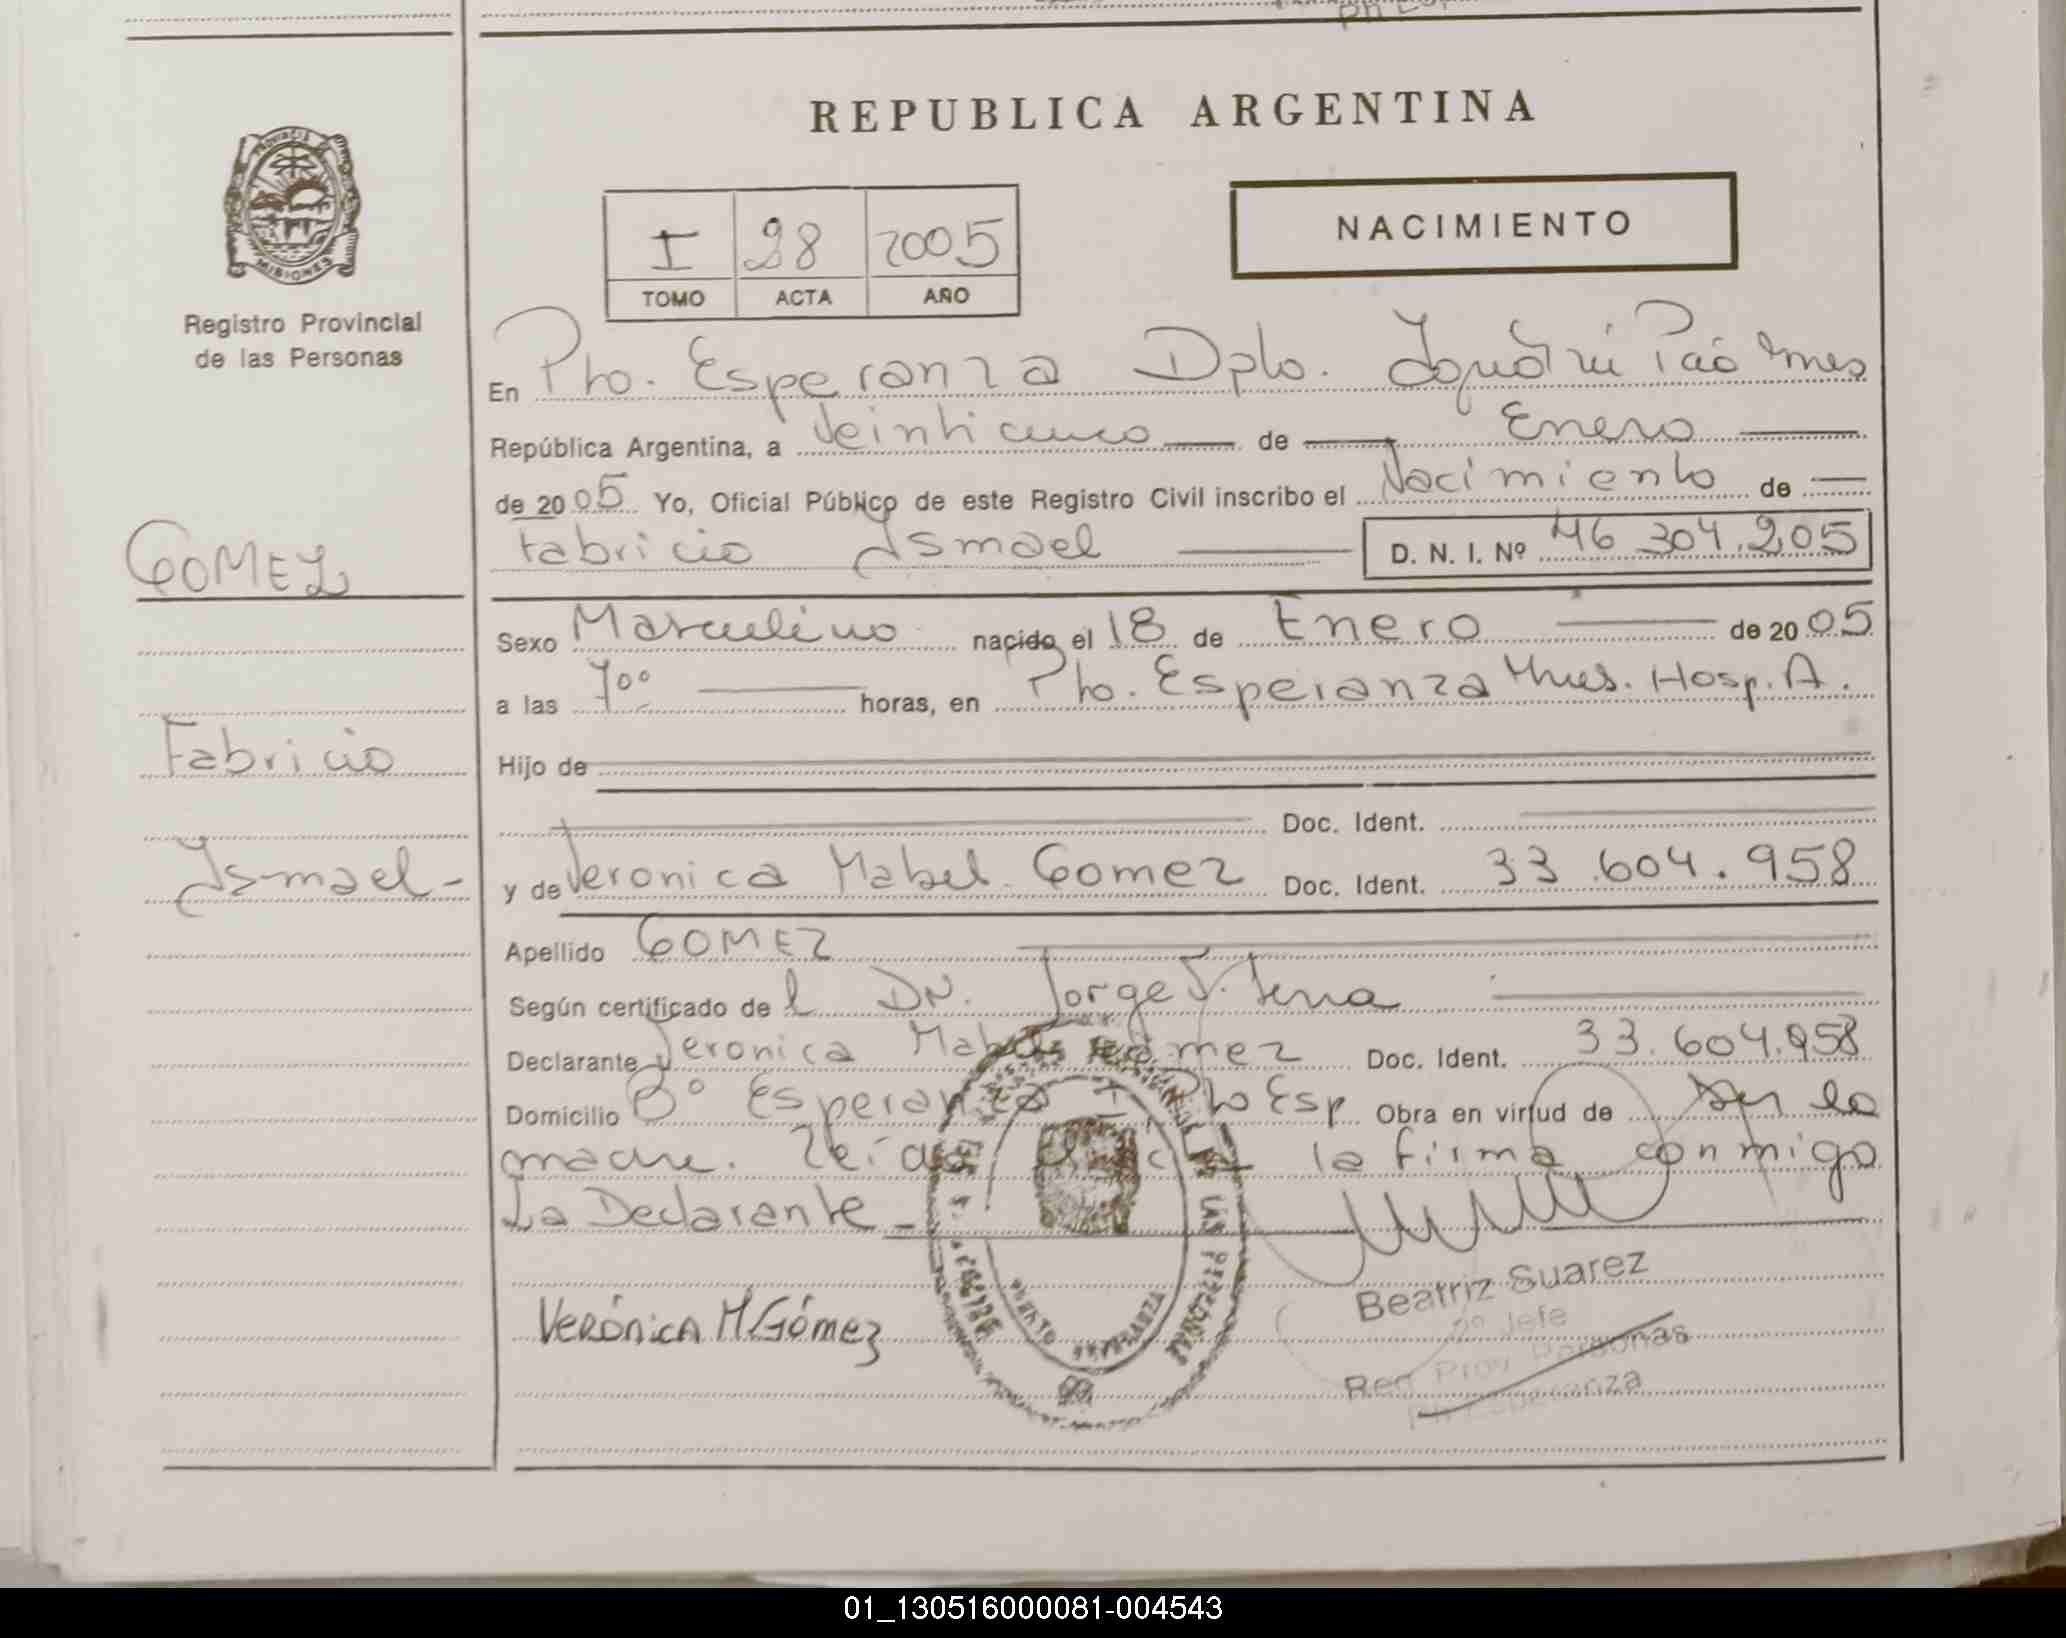 REPUBLICA ARGENTINA
PROVINCIA DE
MISIONES
Registro Provincial
de las Personas
I 28 2005
TOMO ACTA AÑO
NACIMIENTO
En Pto. Esperanza Dpto. Iguazú Pcia Mnes
República Argentina, a Veinticinco de Enero
de 2005 Yo, Oficial Público de este Registro Civil inscribo el Nacimiento de
Fabricio Ismael D. N. I. Nº 46 304.205
GOMEZ
Sexo Masculino nacido el 18 de Enero de 2005
a las 7⁰⁰ horas, en Pto. Esperanza Mnes. Hosp. A.
Fabricio
Hijo de
Doc. Ident.
Ismael-
y de Veronica Mabel Gomez Doc. Ident. 33.604.958
Apellido GOMEZ
Según certificado del Dr. Jorge
Declarante Veronica Mabel Gomez Doc. Ident. 33.604.958
Domicilio Bº Esperanza I Pto Esp. Obra en virtud de Ser la
madre. Leída el acta la firma conmigo
La Declarante-
Verónica M Gómez
Beatriz Suarez
2º Jefe
Reg. Prov. Personas
Pto. Esperanza
01_130516000081-004543